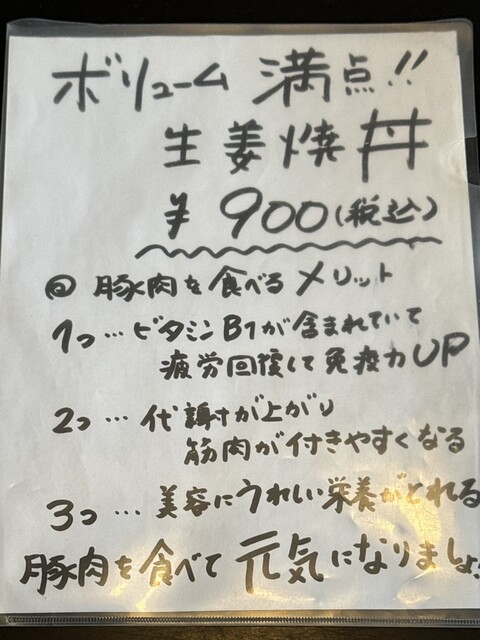 ボリューム 満点!!
生姜焼丼
¥ 900(税込)
◎ 豚肉を食べるメリット
1つ… ビタミンB1が含まれていて
疲労回復して免疫力UP
2つ… 代謝が上がり
筋肉が付きやすくなる
3つ… 美容にうれしい栄養がとれる
豚肉を食べて元気になりましょ